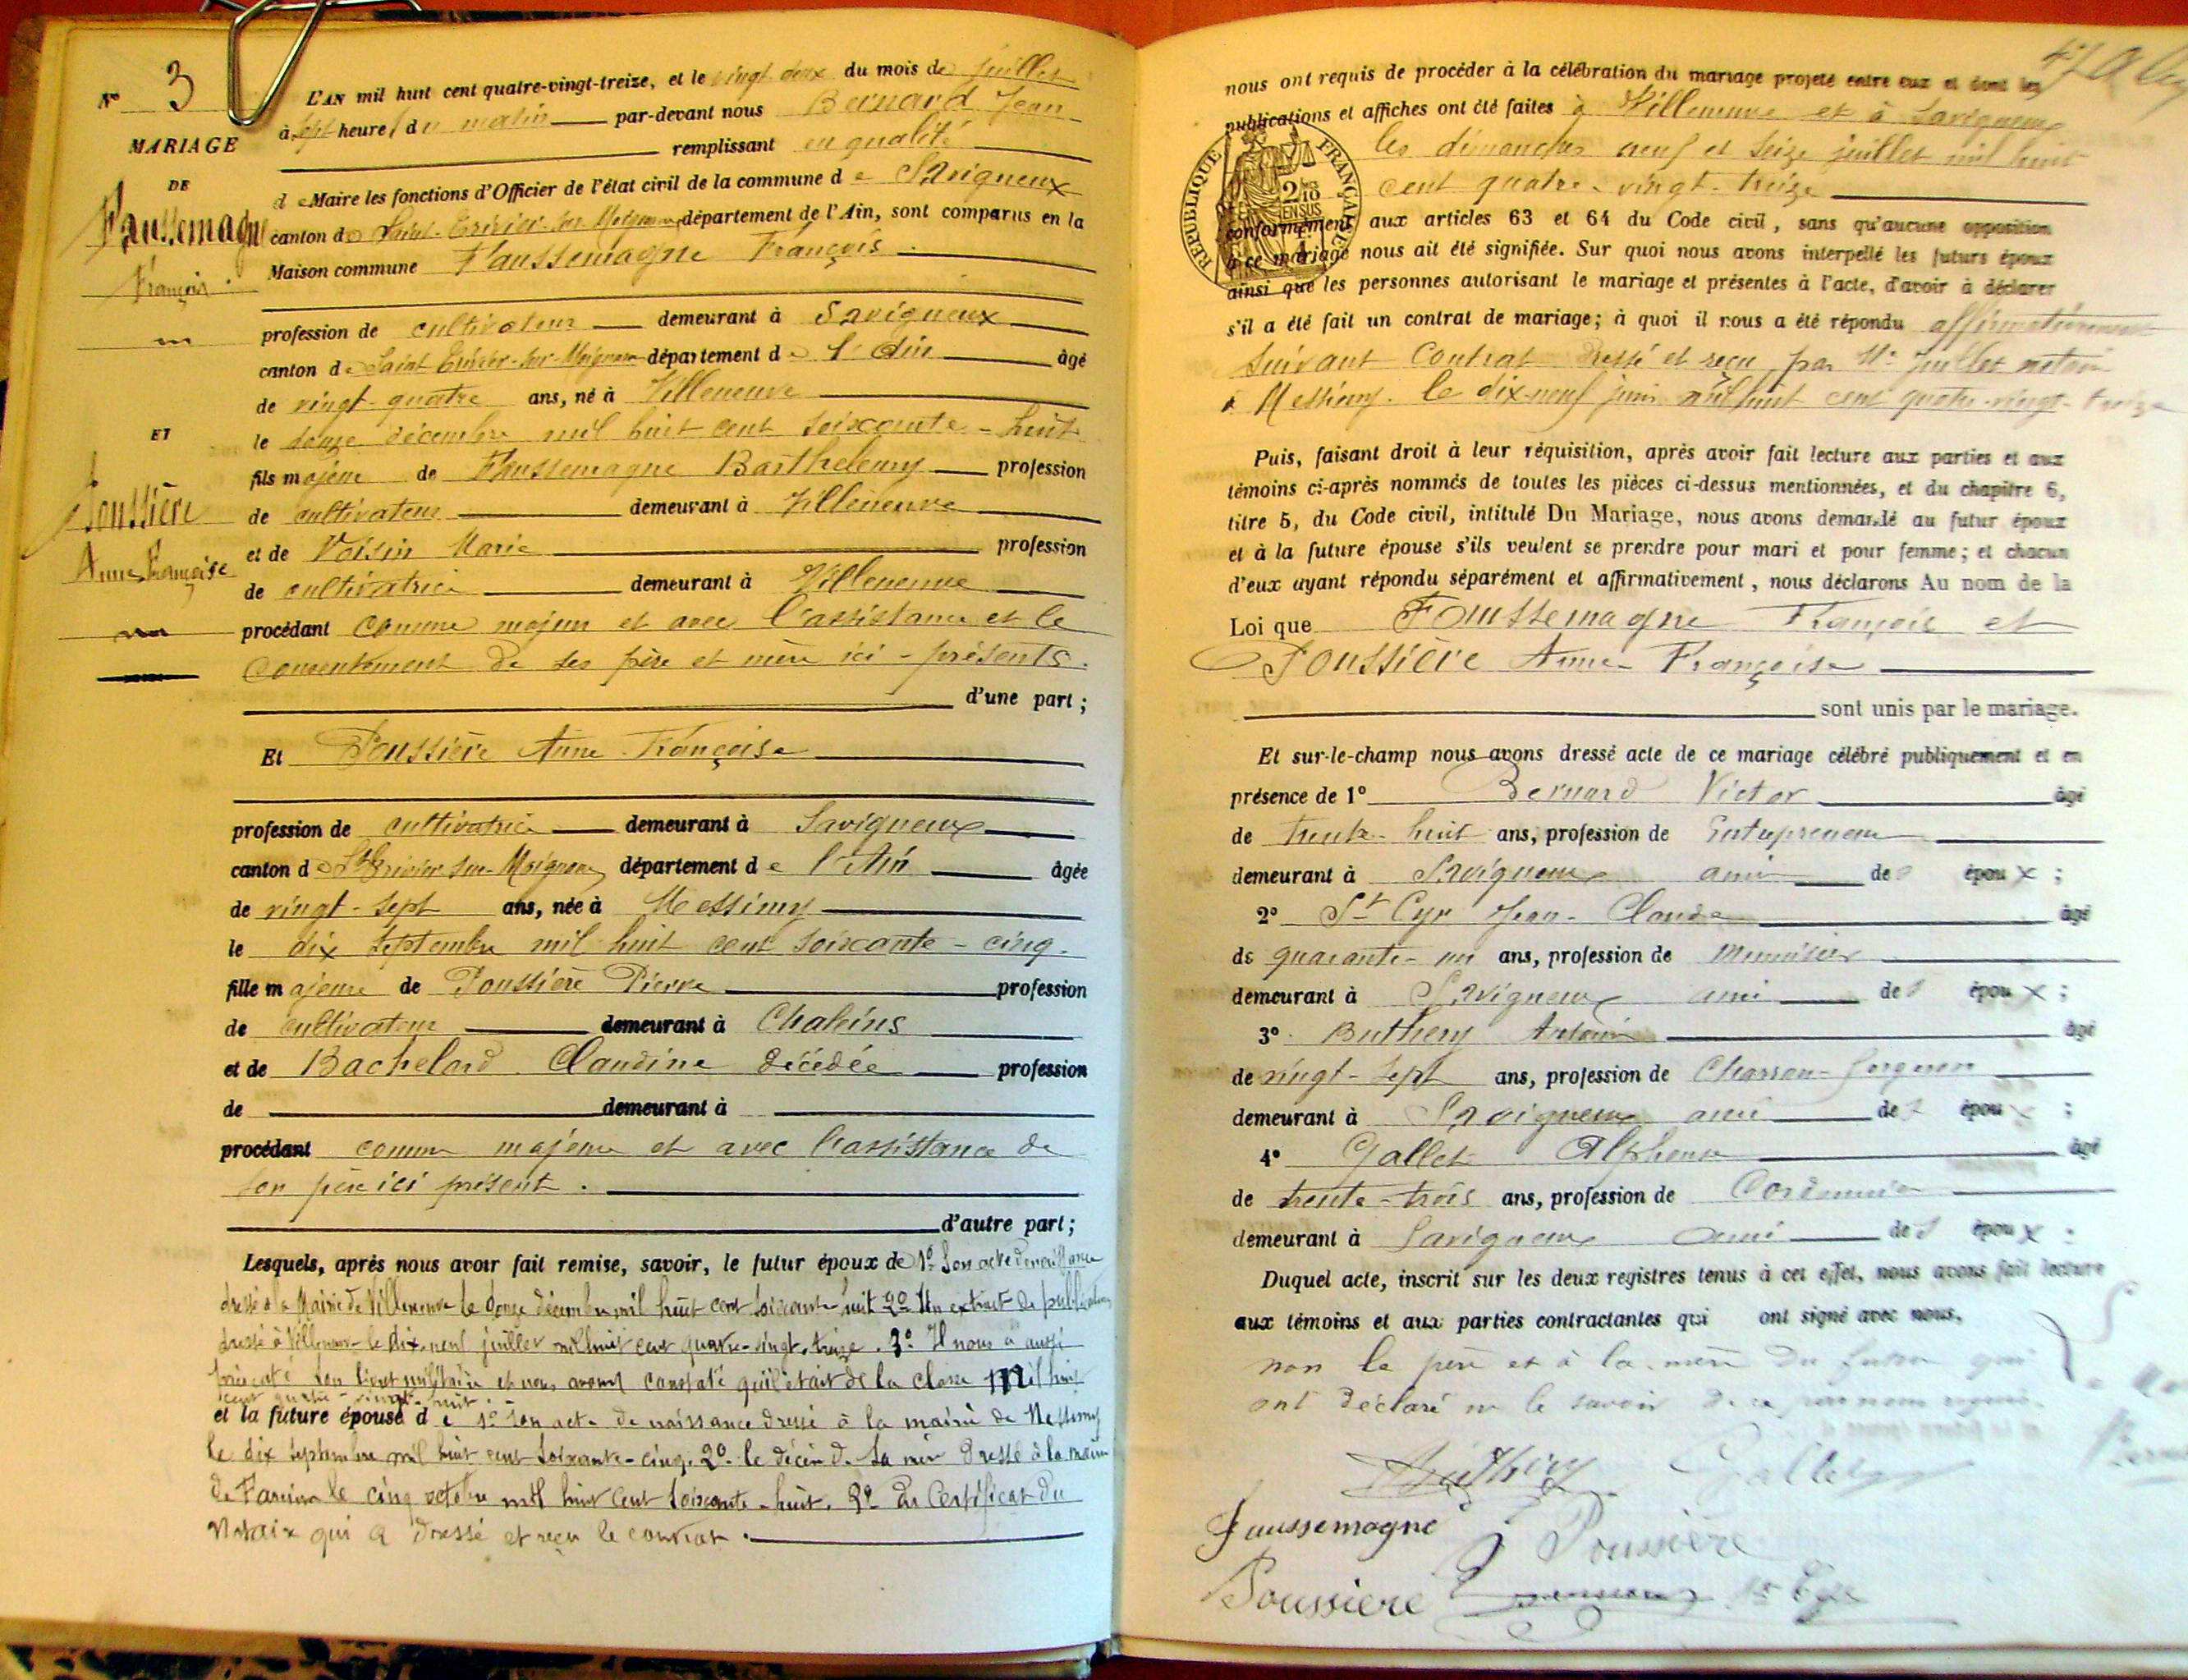 N° 3
MARIAGE
DE
Faussemagne
François
ET
Poussière
Anne Françoise
L'AN mil huit cent quatre-vingt-treize, et le vingt deux du mois de juillet
à sept heures du matin par-devant nous Bernard Jean
remplissant en qualité
de Maire les fonctions d'Officier de l'état civil de la commune de Savigneux
canton de Saint-Trivier-sur-Moignans département de l'Ain, sont comparus en la
Maison commune Faussemagne François
profession de cultivateur demeurant à Savigneux
canton de Saint Trivier-sur-Moignans département de l'Ain âgé
de vingt-quatre ans, né à Villeneuve
le douze décembre mil huit cent soixante-huit
fils majeur de Faussemagne Barthelemy profession
de cultivateur demeurant à Villeneuve
et de Voisin Marie profession
de cultivatrice demeurant à Villeneuve
procédant comme majeur et avec l'assistance et le
consentement de ses père et mère ici-présents.
d'une part ;
Et Poussière Anne Françoise
profession de cultivatrice demeurant à Savigneux
canton de St Trivier-sur-Moignans département de l'Ain âgée
de vingt-sept ans, née à Messimy
le dix septembre mil huit cent soixante-cinq.
fille majeure de Poussière Pierre profession
de cultivateur demeurant à Chaleins
et de Bachelard Claudine décédée profession
de demeurant à
procédant comme majeure et avec l'assistance de
son père ici présent.
d'autre part ;
Lesquels, après nous avoir fait remise, savoir, le futur époux de 1° Son acte de naissance
dressé à la Mairie de Villeneuve le douze décembre mil huit cent soixante-huit 2° Un extrait de publication
dressé à Villeneuve le dix-neuf juillet mil huit cent quatre-vingt-treize. 3° Il nous a aussi
présenté son livret militaire et nous avons constaté qu'il était de la classe mil huit
cent quatre-vingt-huit.
et la future épouse de 1° Son acte de naissance dressé à la mairie de Messimy
le dix septembre mil huit cent soixante-cinq. 2° le décès de sa mère dressé à la mairie
de Fareins le cinq octobre mil huit cent soixante-huit. 3° Du Certificat du
Notaire qui a dressé et reçu le contrat.
nous ont requis de procéder à la célébration du mariage projeté entre eux et dont les
publications et affiches ont été faites à Villeneuve et à Savigneux
les dimanches neuf et seize juillet mil huit
cent quatre-vingt-treize
RÉPUBLIQUE FRANÇAISE
conformément aux articles 63 et 64 du Code civil, sans qu'aucune opposition
à ce mariage nous ait été signifiée. Sur quoi nous avons interpellé les futurs époux
ainsi que les personnes autorisant le mariage et présentes à l'acte, d'avoir à déclarer
s'il a été fait un contrat de mariage; à quoi il nous a été répondu affirmativement
suivant contrat dressé et reçu par Me Juillet notaire
à Messimy. le dix-neuf juin mil huit cent quatre-vingt-treize
Puis, faisant droit à leur réquisition, après avoir fait lecture aux parties et aux
témoins ci-après nommés de toutes les pièces ci-dessus mentionnées, et du chapitre 6,
titre 5, du Code civil, intitulé Du Mariage, nous avons demandé au futur époux
et à la future épouse s'ils veulent se prendre pour mari et pour femme; et chacun
d'eux ayant répondu séparément et affirmativement, nous déclarons Au nom de la
Loi que Faussemagne François et
Poussière Anne-Françoise
sont unis par le mariage.
Et sur-le-champ nous avons dressé acte de ce mariage célébré publiquement et en
présence de 1° Bernard Victor âgé
de trente-huit ans, profession de Entrepreneur
demeurant à Savigneux ami des époux ;
2° St Cyr Jean-Claude âgé
de quarante-un ans, profession de Menuisier
demeurant à Savigneux ami des époux ;
3° Buthery Antoine âgé
de vingt-sept ans, profession de Charron-forgeron
demeurant à Savigneux ami des époux ;
4° Gallet Alphonse âgé
de trente-trois ans, profession de Cordonnier
demeurant à Savigneux ami des époux .
Duquel acte, inscrit sur les deux registres tenus à cet effet, nous avons fait lecture
aux témoins et aux parties contractantes qui ont signé avec nous.
non le père et à la mère du futur qui
ont déclaré ne le savoir de ce par nous requis.
Buthery Gallet
Faussemagne Poussière
Poussière St Cyr